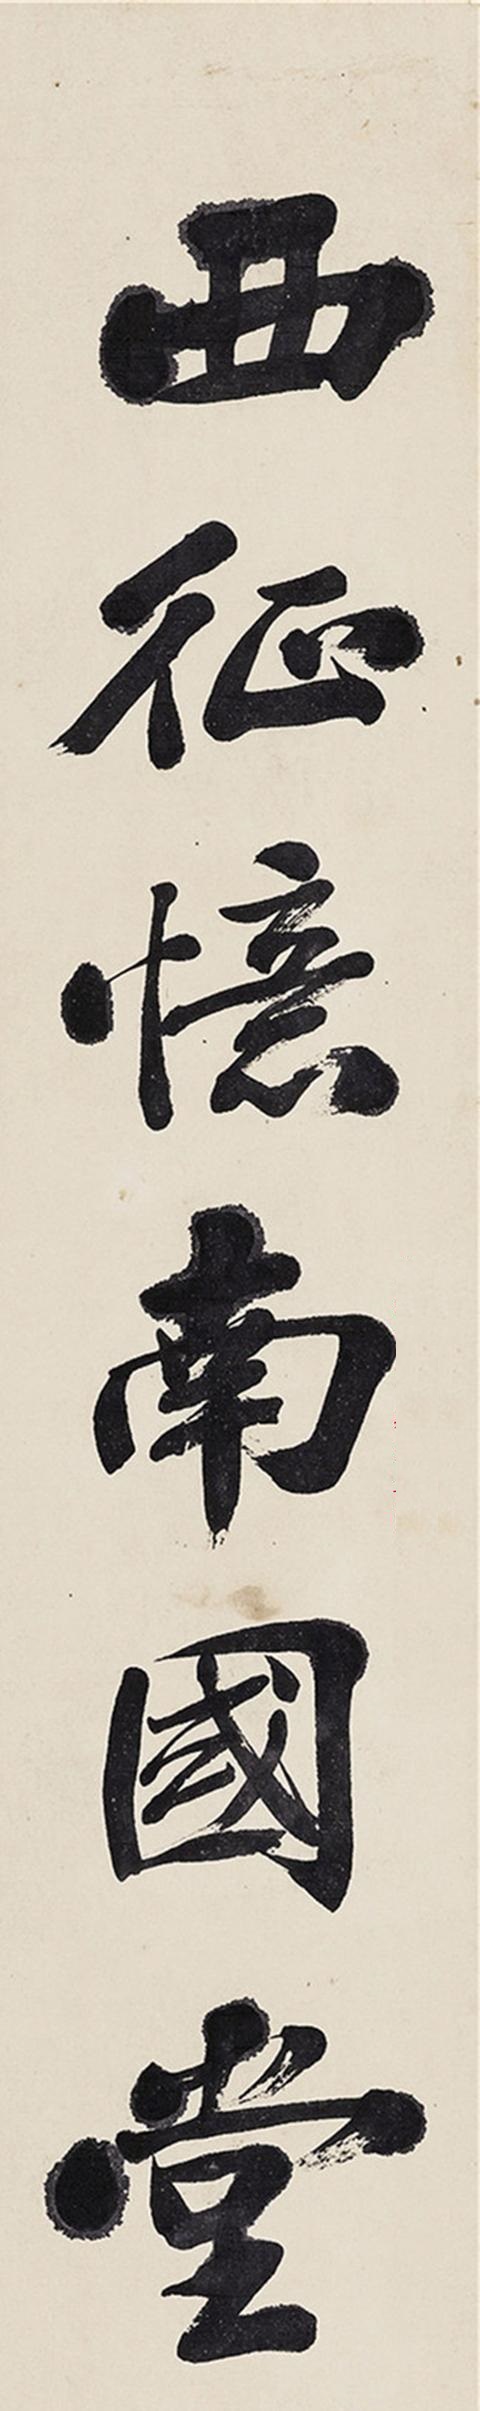 西征憶南國堂